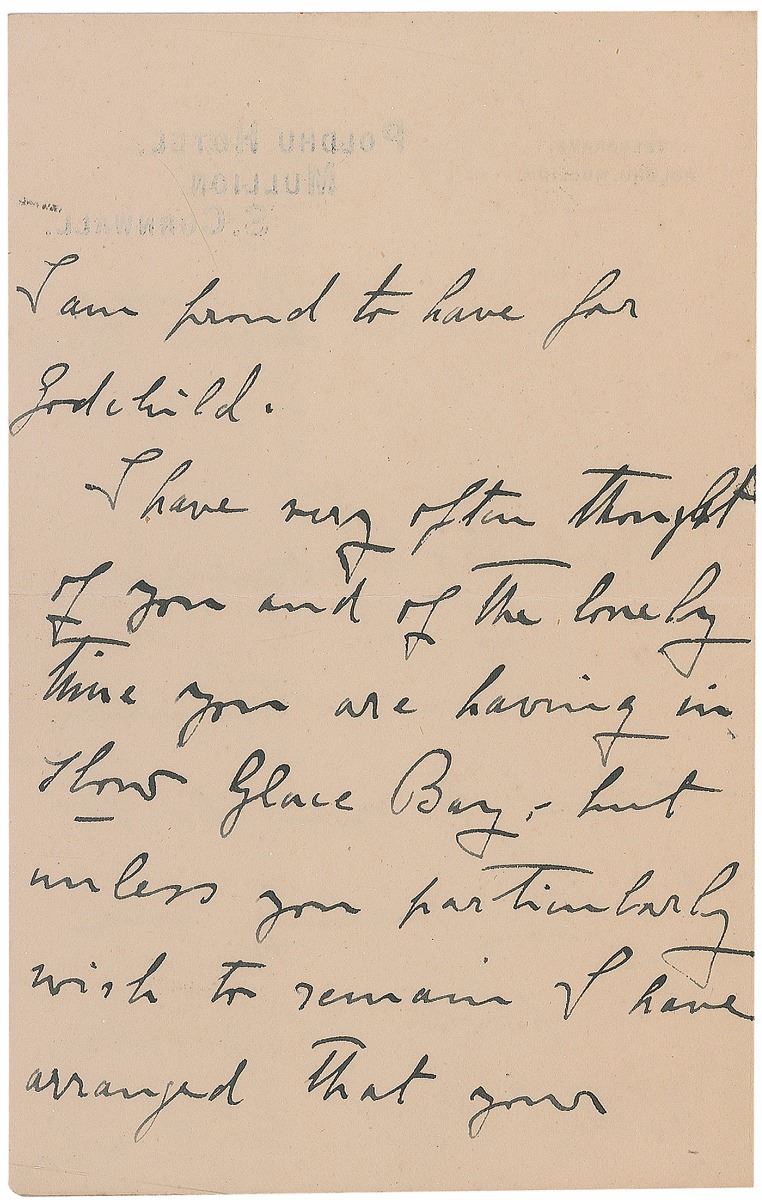 POLDHU HOTEL,
MULLION
S. CORNWALL.
I am proud to have for
Godchild.
I have very often thought
of you and of the lonely
time you are having in
slow Glace Bay, - but
unless you particularly
wish to remain I have
arranged that your